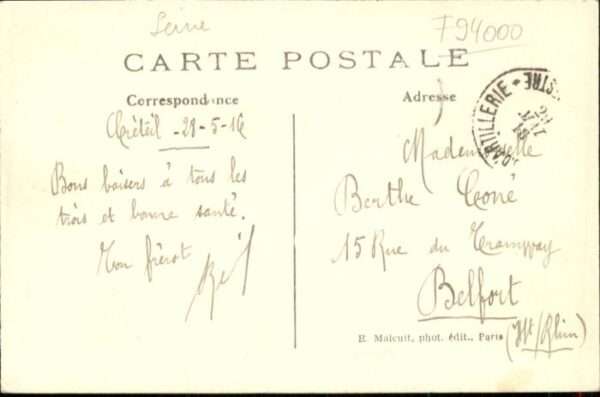 Seine
F94000
CARTE POSTALE
Correspondance
Créteil - 29-5-16
Bons baisers à tous les
trois et bonne santé.
Ton frérot
Adresse
Mademoiselle
Berthe Coné
15 Rue du Tramway
Belfort
(Ht/Rhin)
D'ARTILLERIE
E. Malcuit, phot. édit., Paris